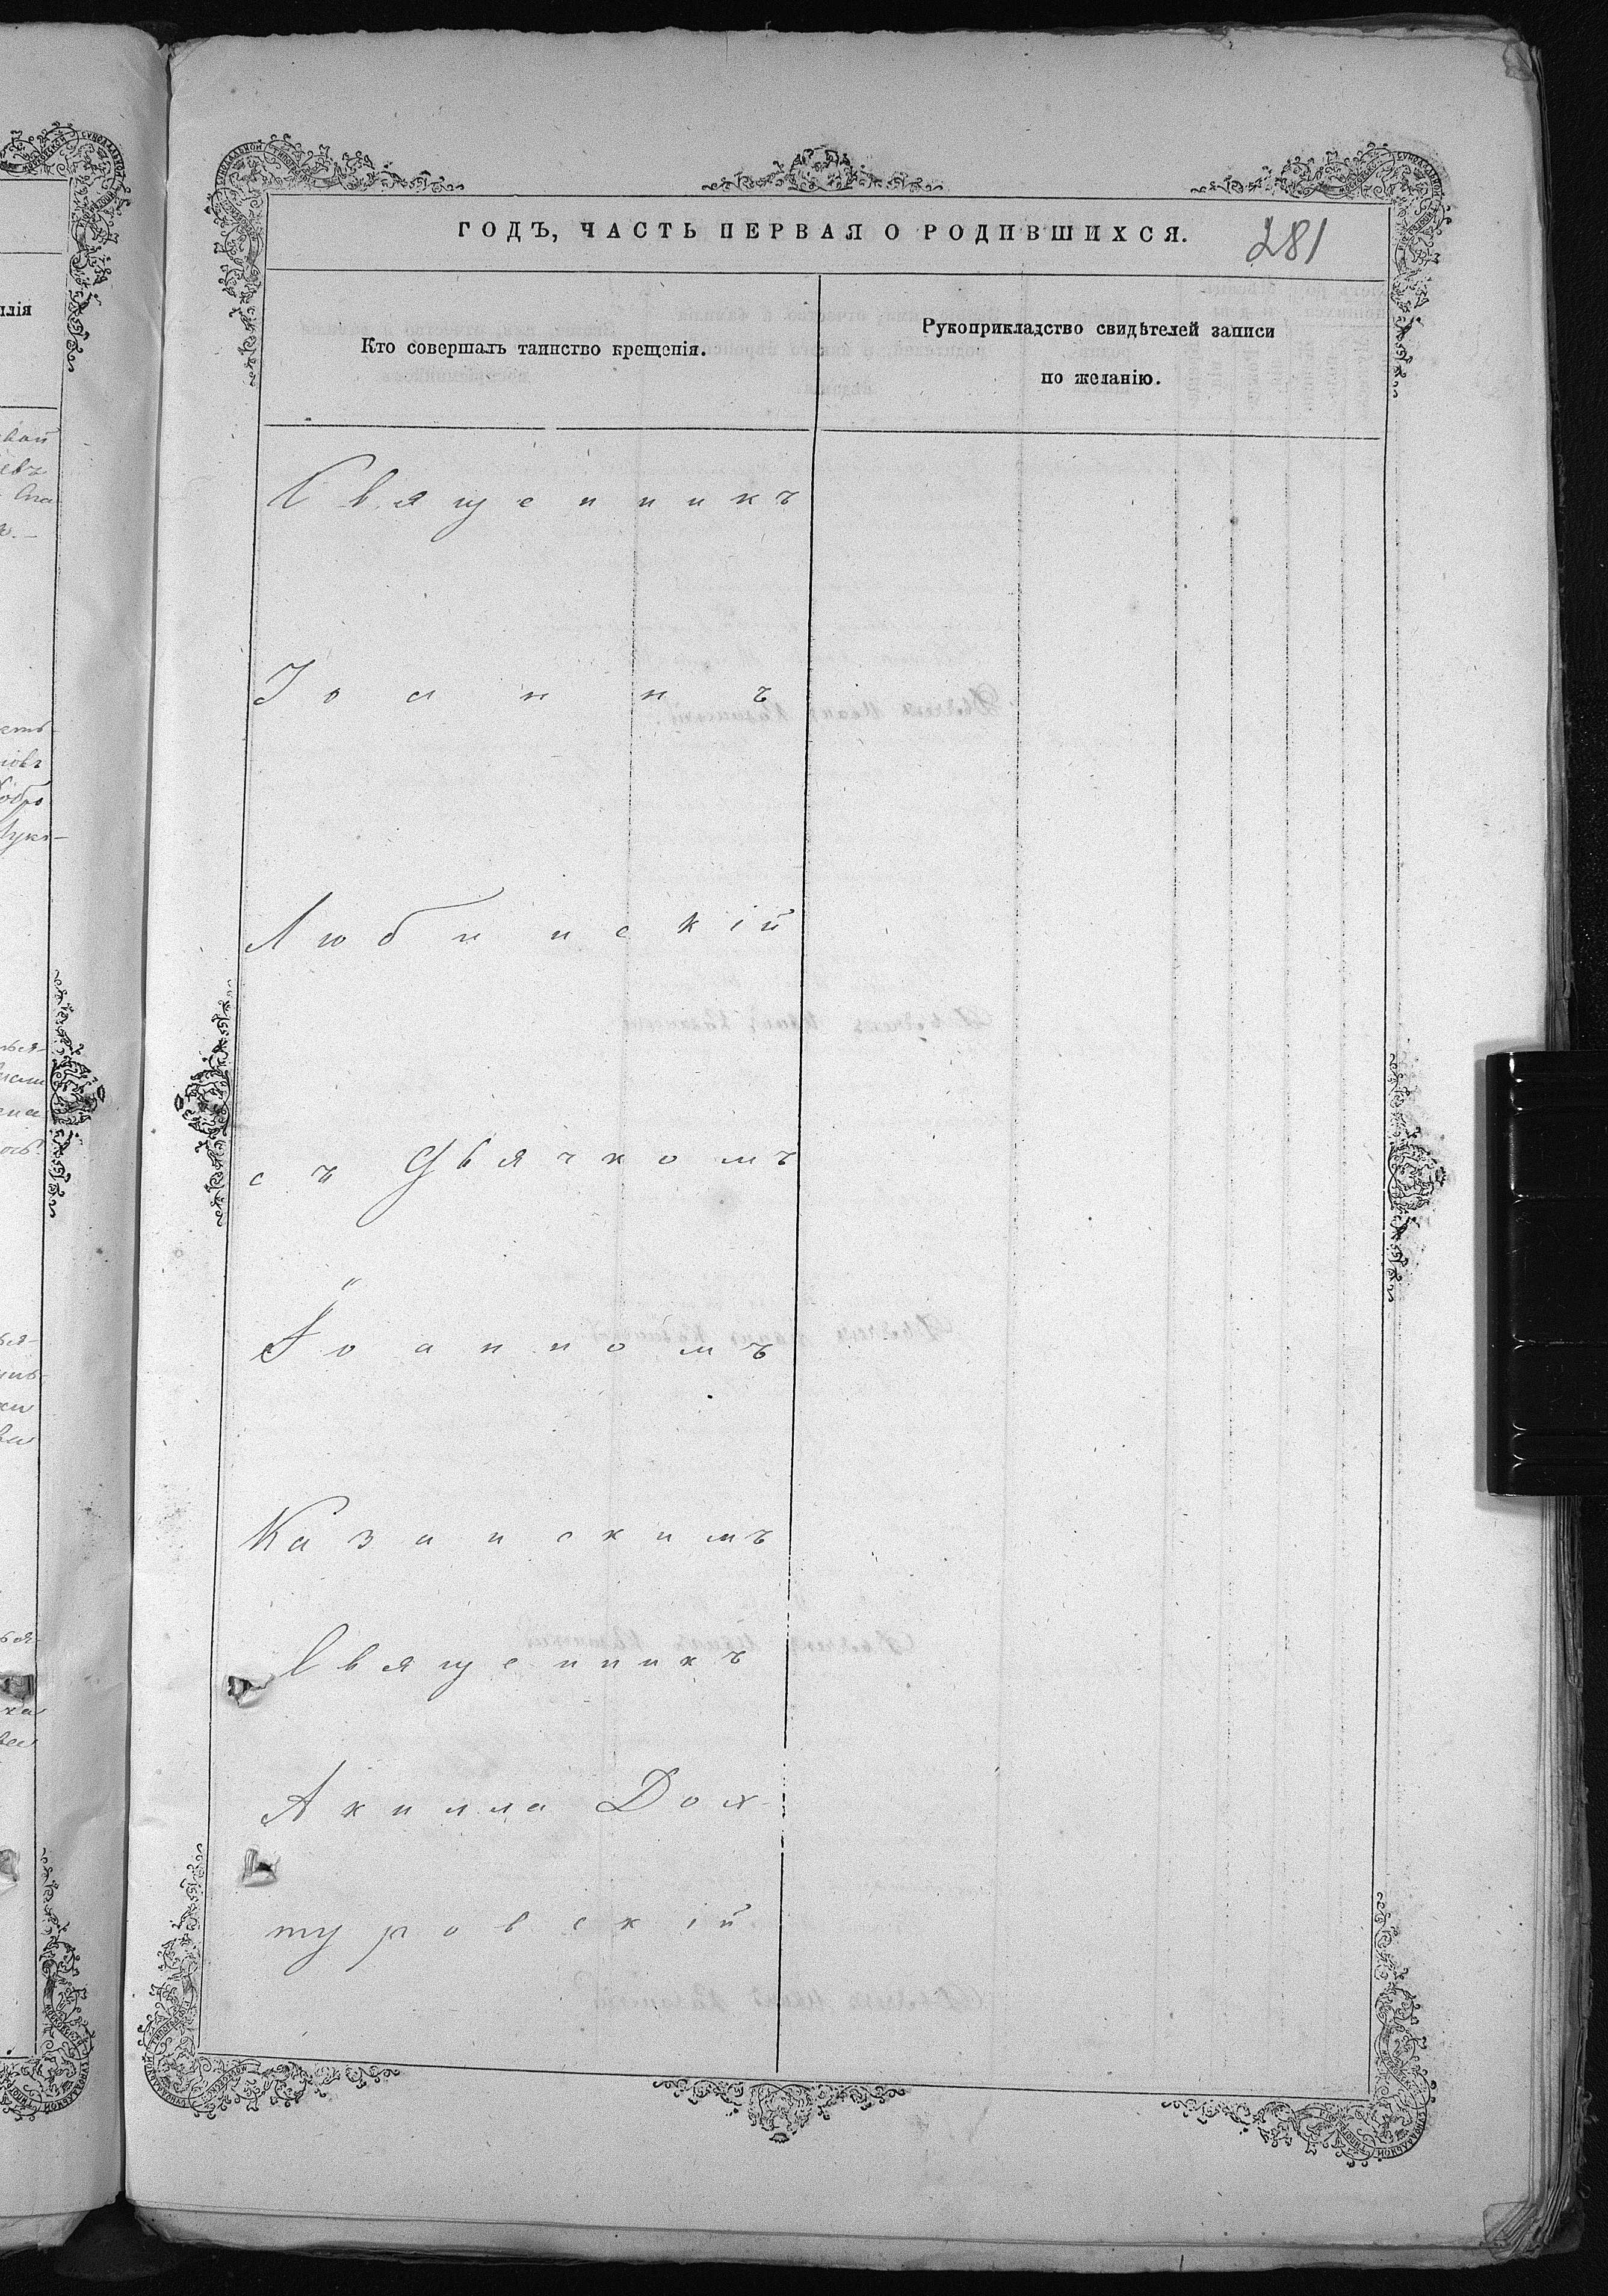 ГОДЪ, ЧАСТЬ ПЕРВАЯ О РОДИВШИХСЯ.
281
Кто совершалъ таинство крещенія.
Рукоприкладство свидѣтелей записи
по желанію.
Священникъ
Іоаннъ
Любинскій
съ Дьячкомъ
Іоанномъ
Казанскимъ
Священникъ
Акилла Дох
туровскій